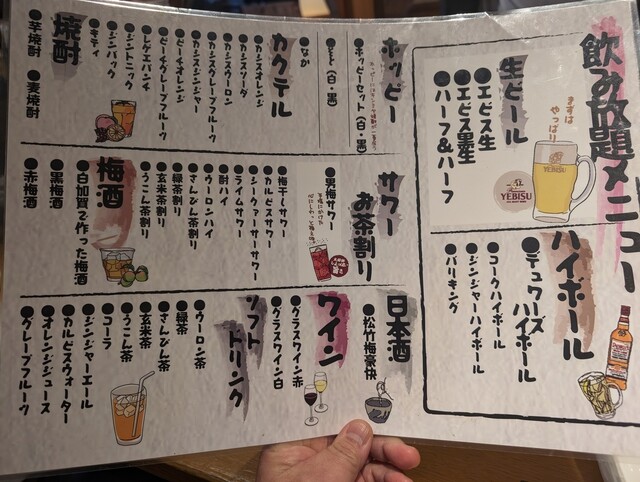 飲み放題メニュー
生ビール
まずは
やっぱり
●エビス生
●エビス黒生
●ハーフ&ハーフ
YEBISU
YEBISU
ハイボール
●デュワーズ
ハイボール
●コークハイボール
●ジンジャーハイボール
●バリキング
ホッピー
●ホッピーセット(白・黒)
●そと(白・黒)
●なか
カクテル
●カシスオレンジ
●カシスソーダ
●カシスウーロン
●カシスグレープフルーツ
●カシスジンジャー
●ピーチオレンジ
●ピーチグレープフルーツ
●レゲエパンチ
●ジントニック
●ジンバック
●キティ
焼酎
●芋焼酎 ●麦焼酎
サワー
お茶割り
●男梅サワー
●梅干しサワー
●カルピスサワー
●シークァーサーサワー
●ライムサワー
●酎ハイ
●ウーロンハイ
●さんぴん茶割り
●緑茶割り
●玄米茶割り
●うこん茶割り
梅酒
●白加賀で作った梅酒
●黒梅酒
●赤梅酒
日本酒
●松竹梅豪快
ワイン
●グラスワイン赤
●グラスワイン白
ソフト
ドリンク
●ウーロン茶
●緑茶
●さんぴん茶
●玄米茶
●うこん茶
●コーラ
●ジンジャーエール
●カルピスウォーター
●オレンジジュース
●グレープフルーツ